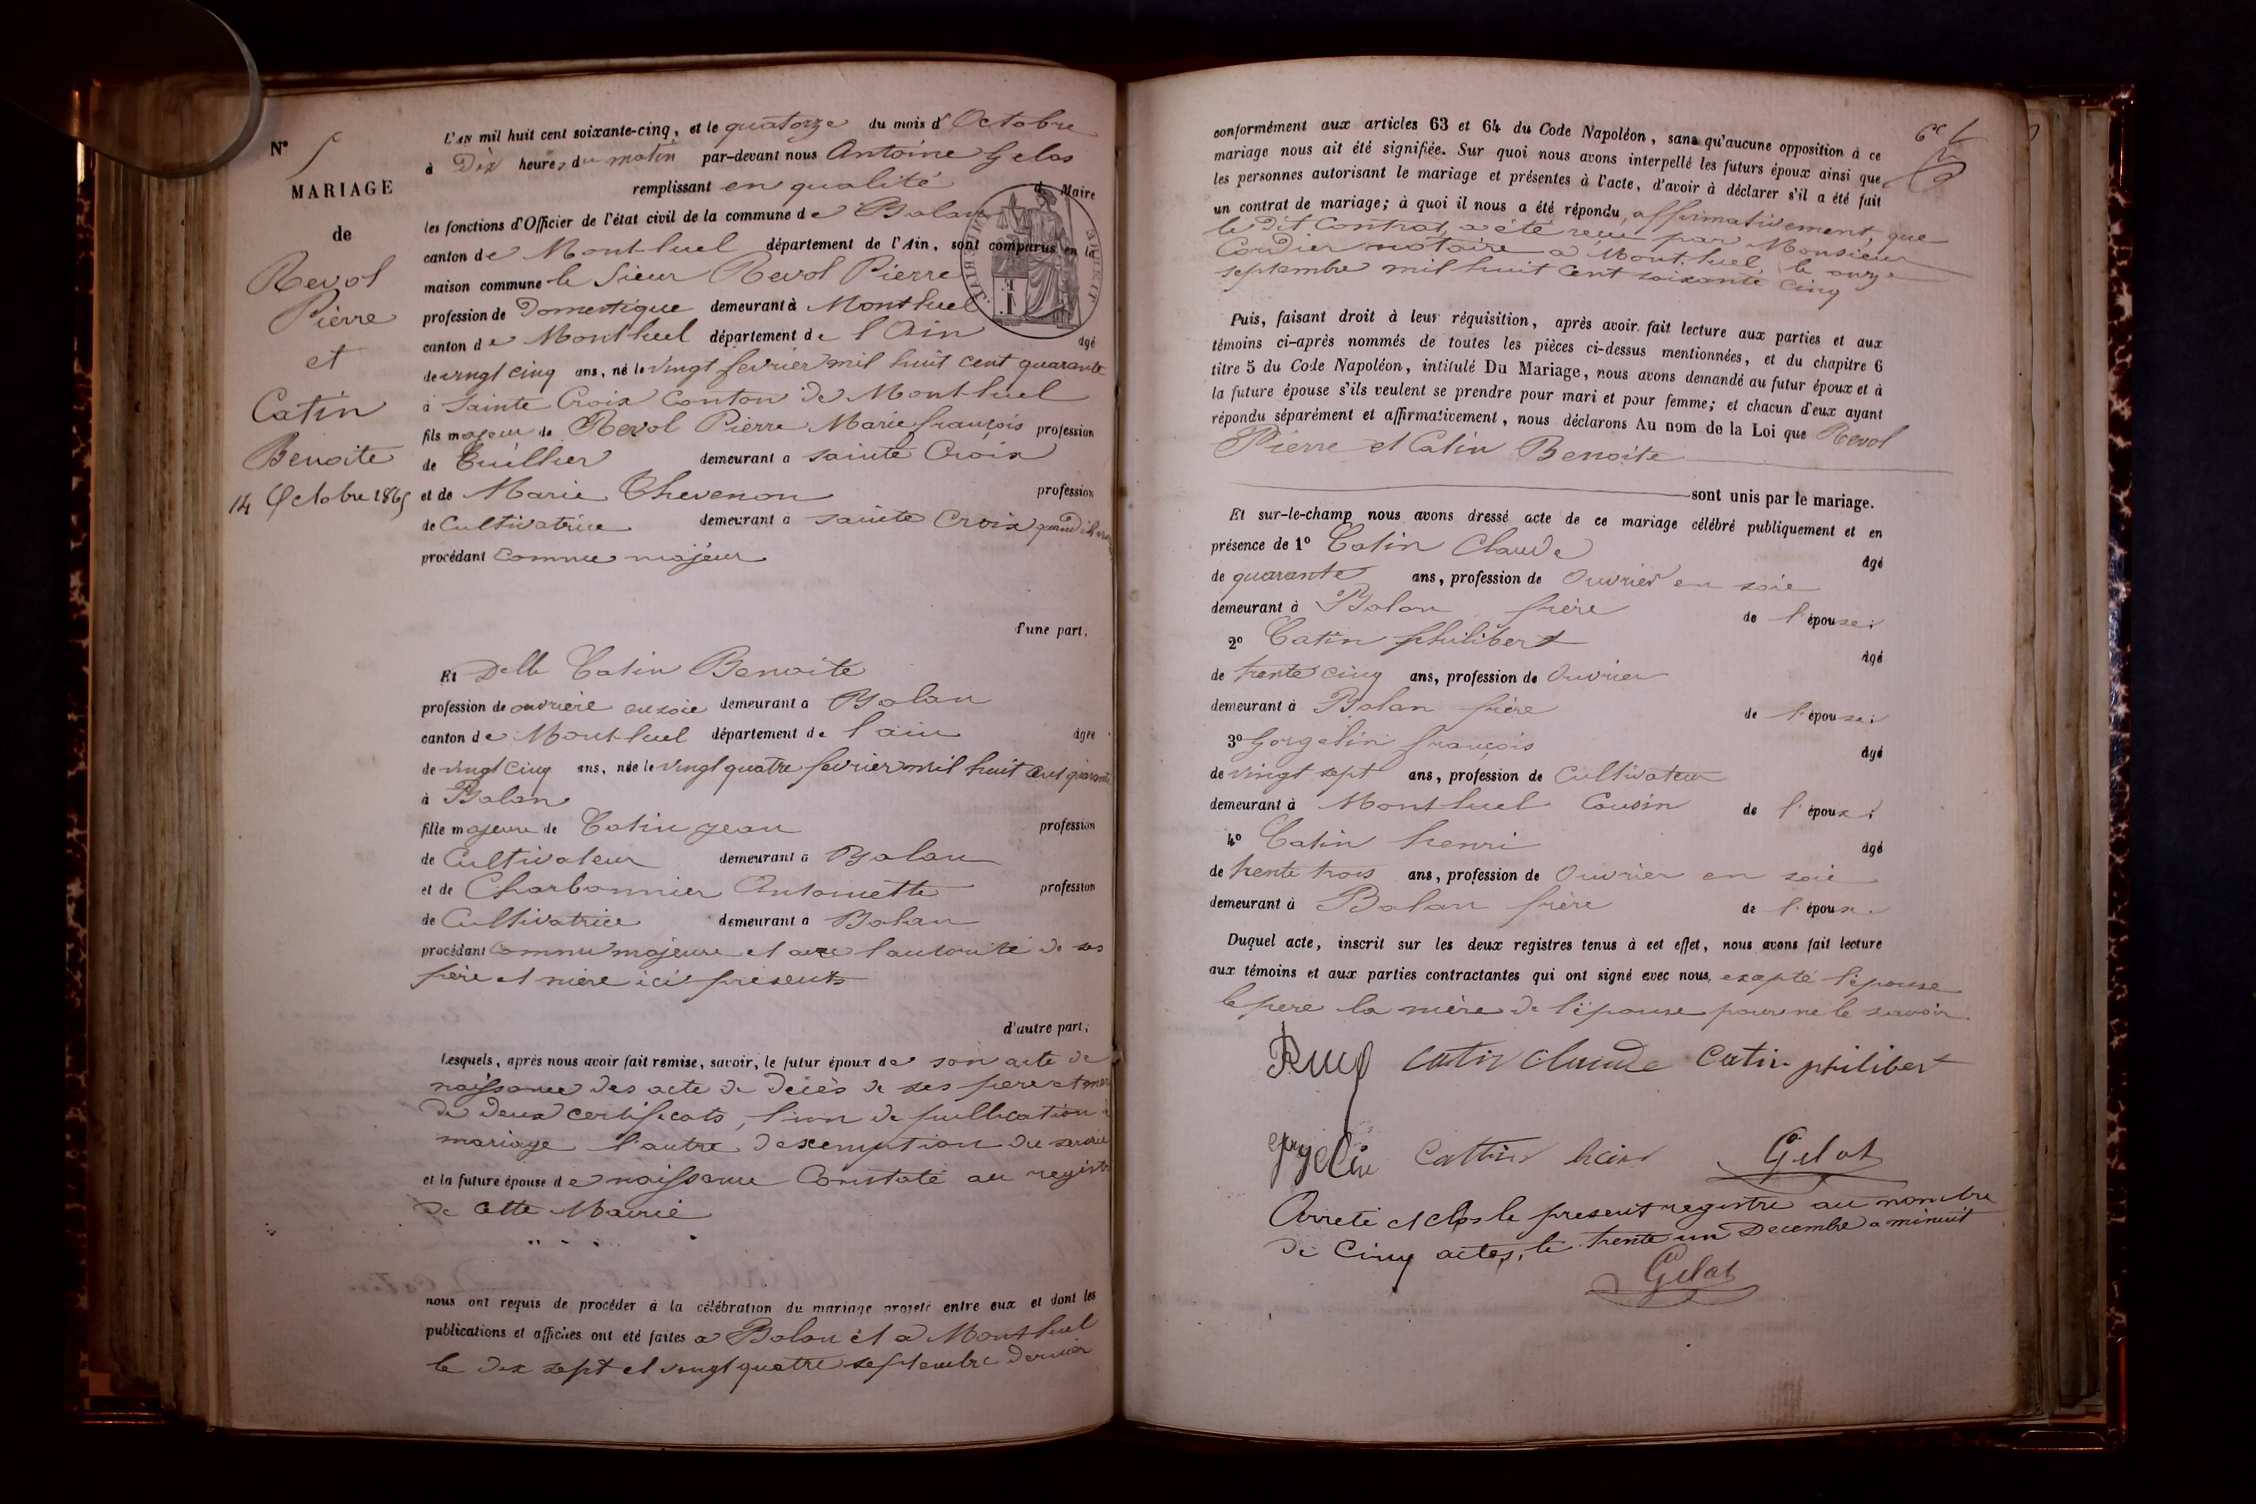 N° 5
MARIAGE
de
Revol
Pierre
et
Catin
Benoite
14 Octobre 1865
L'AN mil huit cent soixante-cinq, et le quatorze du mois d'Octobre
à Dix heures du matin par-devant nous Antoine Gelas
remplissant en qualité de Maire
les fonctions d'Officier de l'état civil de la commune de Balan
canton de Montluel département de l'Ain, sont comparus en la
maison commune le Sieur Revol Pierre
profession de Domestique demeurant à Montluel
canton de Montluel département de l'Ain âgé
de vingt cinq ans, né le vingt fevrier mil huit cent quarante
à Sainte Croix Conton de Montluel
fils majeur de Revol Pierre Marie françois profession
de Tuillier demeurant à sainte Croix
et de Marie Thevenon profession
de Cultivatrice demeurant à sainte Croix quand
procédant comme majeur
d'une part,
Et Delle Catin Benoite
profession de ouvrière en soie demeurant à Balan
canton de Montluel département de l'ain âgée
de vingt cinq ans, née le vingt quatre fevrier mil huit cent quarante
à Balan
fille majeure de Catin jean profession
de Cultivateur demeurant à Balan
et de Charbonnier Antoinette profession
de Cultivatrice demeurant à Balan
procédant comme majeure et avec l'autorité de ses
père et mère ici présents
d'autre part;
Lesquels, après nous avoir fait remise, savoir, le futur époux de son acte de
naissance des acte de décès de ses père et mère
de deux certificats, l'un de publication de
mariage l'autre d'exemption du service
et la future épouse de naissance Constaté au registre
de cette Mairie
nous ont requis de procéder à la célébration du mariage projeté entre eux et dont les
publications et affiches ont été faites à Balan et à Montluel
le dix sept et vingt quatre septembre dernier
6e
conformément aux articles 63 et 64 du Code Napoléon, sans qu'aucune opposition à ce
mariage nous ait été signifiée. Sur quoi nous avons interpellé les futurs époux ainsi que
les personnes autorisant le mariage et présentes à l'acte, d'avoir à déclarer s'il a été fait
un contrat de mariage; à quoi il nous a été répondu, affirmativement, que
le Dit Contrat, a été reçu par Monsieur
Cordier notaire à Montluel, le onze
septembre mil huit cent soixante cinq
Puis, faisant droit à leur réquisition, après avoir fait lecture aux parties et aux
témoins ci-après nommés de toutes les pièces ci-dessus mentionnées, et du chapitre 6
titre 5 du Code Napoléon, intitulé Du Mariage, nous avons demandé au futur époux et à
la future épouse s'ils veulent se prendre pour mari et pour femme; et chacun d'eux ayant
répondu séparément et affirmativement, nous déclarons Au nom de la Loi que Revol
Pierre et Catin Benoite
sont unis par le mariage.
Et sur-le-champ nous avons dressé acte de ce mariage célébré publiquement et en
présence de 1° Catin Claude âgé
de quarante ans, profession de Ouvrier en soie
demeurant à Balan frère de l'épouse;
2° Catin philibert âgé
de trente cinq ans, profession de Ouvrier
demeurant à Balan frère de l'épouse;
3° Gorgelin françois âgé
de vingt sept ans, profession de Cultivateur
demeurant à Montluel Cousin de l'époux;
4° Catin henri âgé
de trente trois ans, profession de Ouvrier en soie
demeurant à Balan frère de l'épouse.
Duquel acte, inscrit sur les deux registres tenus à cet effet, nous avons fait lecture
aux témoins et aux parties contractantes qui ont signé avec nous, exapté l'épouse
le pere la mère de l'épouse pour ne le savoir.
catin claude Catin philibert
gorgelin Cattin Gelas
Arreté et clos le present registre au nombre
de Cinq actes, le trente un Decembre a minuit
Gelas